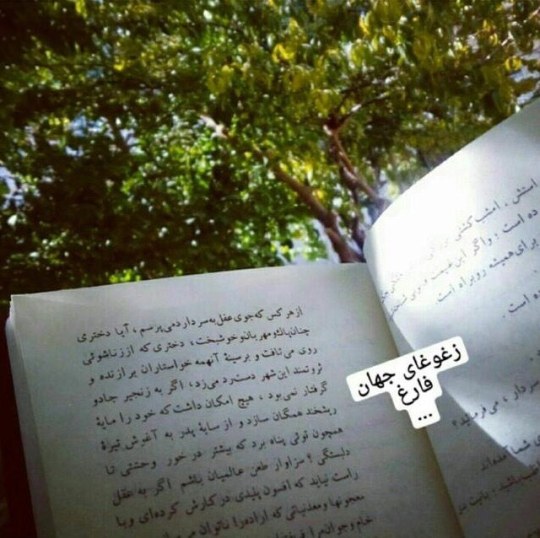 از هر کس که جوی عقل به سر دارد می‌پرسم، آیا دختری
چنان پاک و مهربان و خوشبخت، دختری که از زناشوئی
روی می‌تافت و بر سینهٔ آنهمه خواستاران برازنده و
ثروتمند این شهر دست رد می‌زد، اگر به زنجیر جادو
گرفتار نمی‌بود، هیچ امکان داشت که خود را مایهٔ
ریشخند همگان سازد و از سایهٔ پدر به آغوش تیرهٔ
همچون توئی پناه برد که بیشتر در خور وحشتی تا
دلبستگی؟ سزاوار طعن عالمیان باشم اگر به عقل
راست نیاید که افسون پلیدی در کارش کرده‌ای و با
معجونها و معدنیاتی که اراده را ناتوان می
خام و جوان
استش، امشب کشتی
ده است؛ و اگر این
برای همیشه رو براه است
ده است.
سردار، می‌فرمائید؟
ی شما
زغوغای جهان
فارغ
...